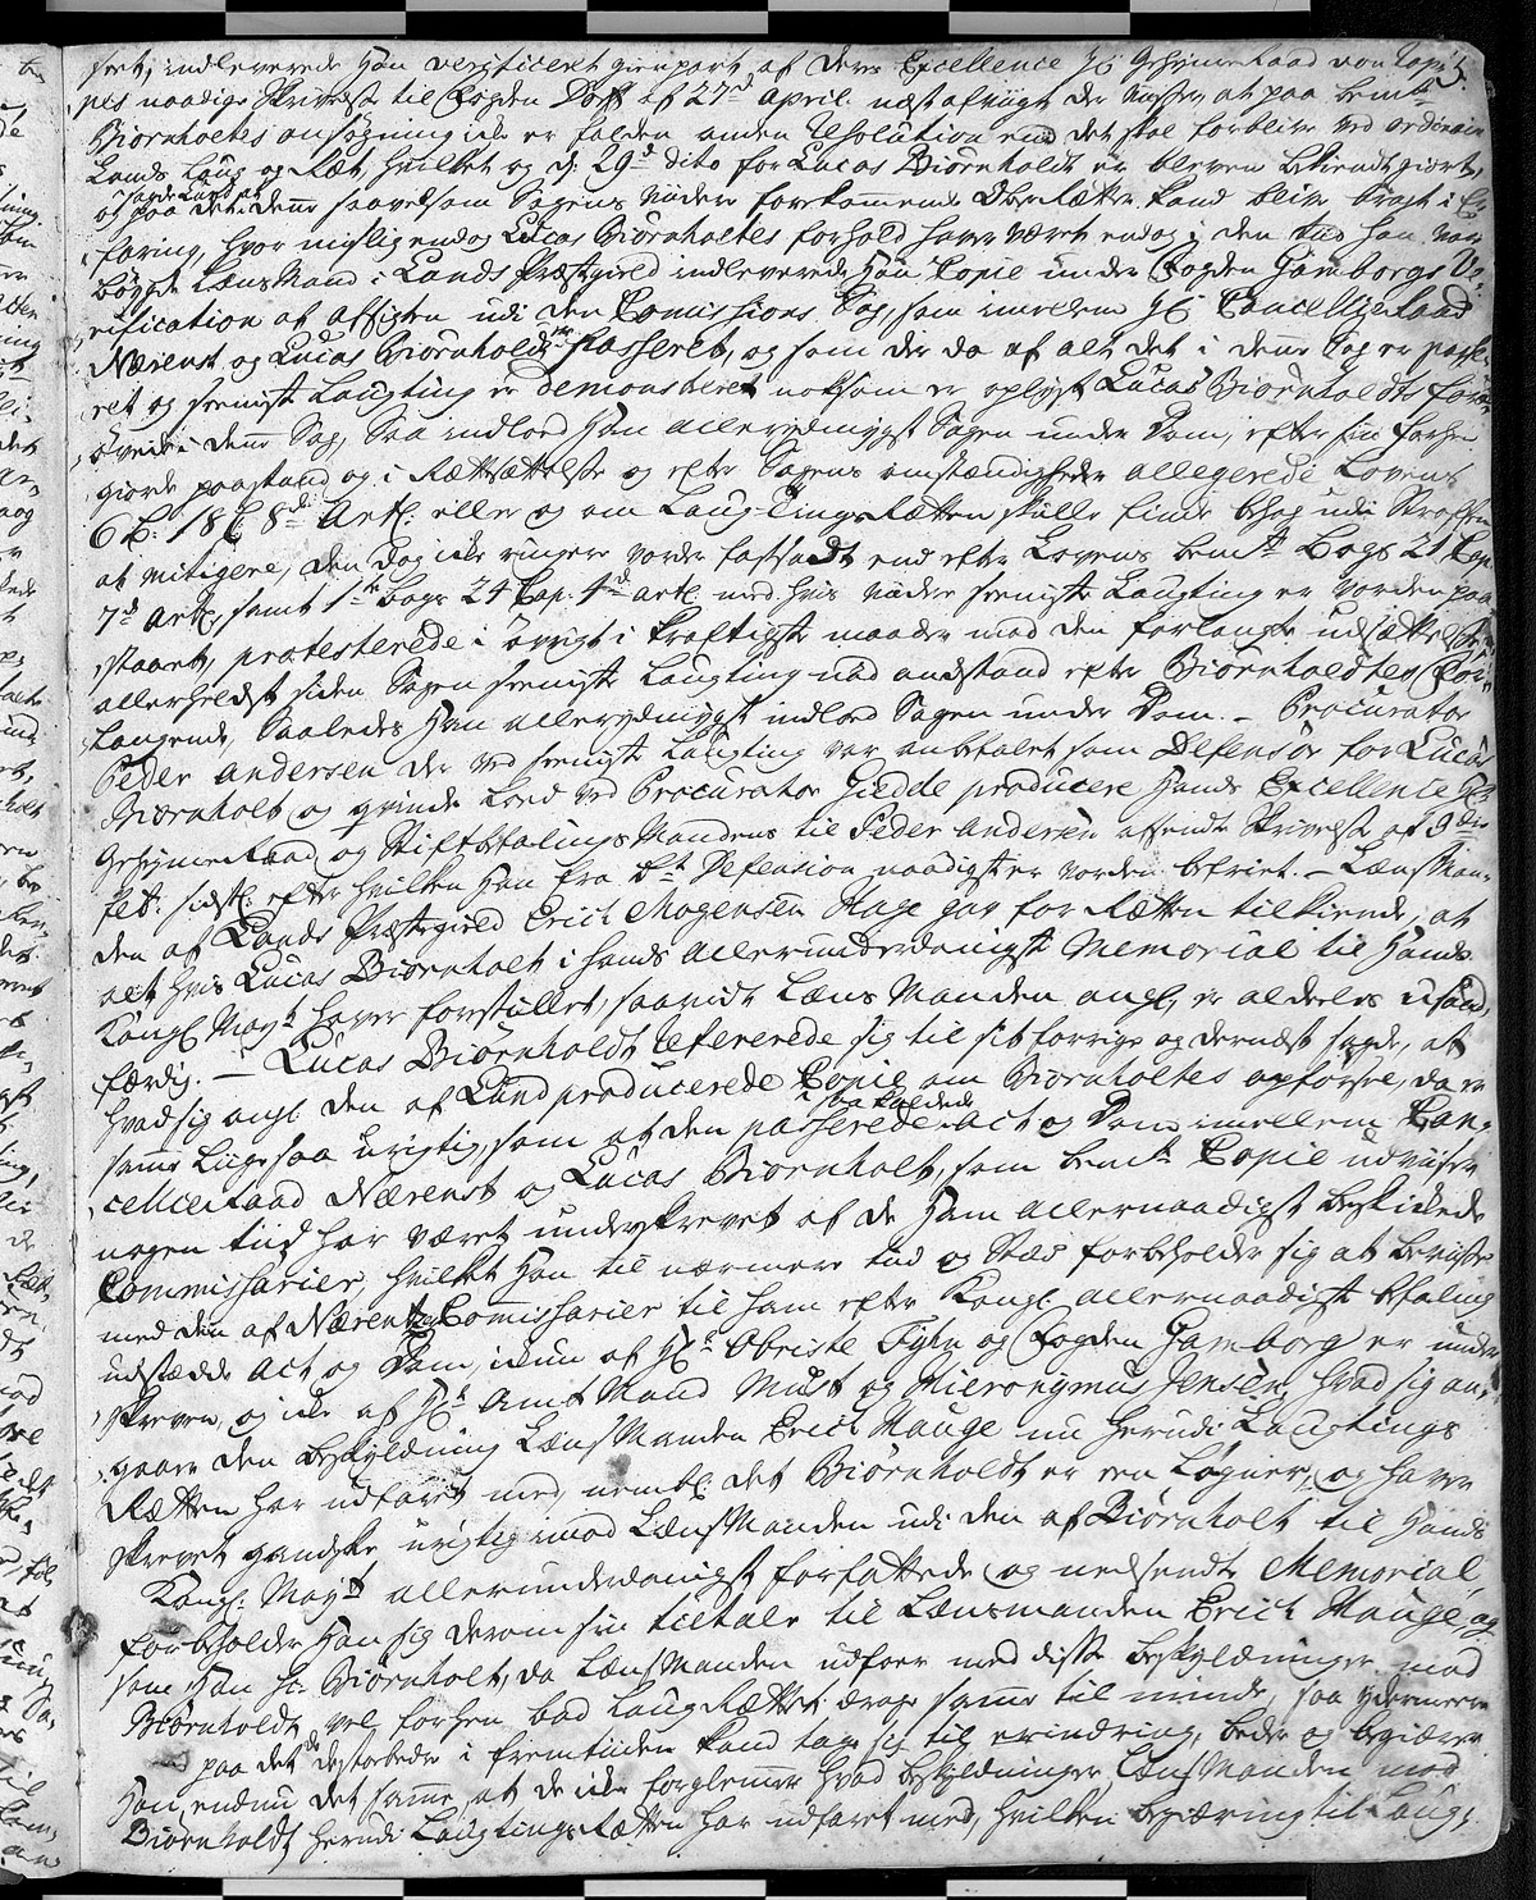 5.
sret, indleverede Han veriticeret gienpart af Deres Excellence Hr. Geheime Raad von Cap¬
pes naadige Skrivelse til Fogden Dorff af 27de April. næstafvigte der viiste, at paa bemte
Biørnholtes ansøgning icke er falden anden Resolution end det skal forblive ved ordinair
Lands Laug og Ræt, hvilket og d: 29de dito for Lucas Biørnholdt er bleven bekiendtgiort,
sagde Lund at
og paa det denne saavelsom Sagens viidere forekommende Ober Retter kand blive bragt i Er¬
faring, hvor mislig endog Lucas Biørnholtes forhold haver været endog i den tiid han var
bøygde LænsMand i Lands Præstegield indleverede Han Copie under Fogden Gamborgs Ve¬
rification af afsigten udi den Comissions Sag, som imellem Hr. Cancellie Raad
Nærenst og Lucas Biørnholdt er Passeret, og som der da af alt det i denne Sag er passe¬
ret og seeniste Laugting er demonstreret noksom er oplyst Lucas Biørnholdts for¬
øvede i denne Sag, Saa indlod Han allerydmygst Sagen under Dom, efter sin forhen
giorde paastand og i Rettesættelse og efter Sagens omstændigheder allegerede Lovens
6 B: 18 C: 8de Artl: eller og om Laug-Tings Retten skulle finde behag udi Straffen
at mitigere, den dog icke ringere vorder fastsadt end efter Lovens bemte Bogs 21 Cap.
7de Artl, samt 1ste bogs 24 Cap. 4de artl. med hvis viidere seeniste Laugting er vorden paa¬
staaet, protesterede i øvrigt i kraftigste maader mod den forlangte udsættelse
allerheldst siden Sagen seeniste Laugting nød andstand efter Biørnholdtes For¬
langende, Saaledes Han allerydmygst indlod Sagen under Dom. – Procurator
Peder Andersen der ved seeniste Laugting var anbefalet som Defensor for Lucas
Biørnholt og qvinde lood ved Procurator Giedde producere Hands Excellence Hr.
Geheime Raad og Stiftbefalings Mandens til Peder Andersen afsendte Skrivelse af 9de
feb: sidstl: efter hvilken Han fra bte Defension naadigst er vorden befriet. – LænsMan¬
den af Lands Præstegield Erich Mogensen Hage gav for Retten tilkiende, at
alt hvis Lucas Biørnholt i hands allerunderdanigste Memorial til Hands
Kongl Mayt haver forestillet, saavidt Læns Manden angl, er aldeeles usand¬
færdig. – Lucas Biørnholdt refererede sig til sit forrige og dernæst sagde, at
hvad sig angl den af Lund producerede Copie om Biørnholtes opførsel, da er
i saa kaldede
samme liige saa urigtig, som at den passerede Act og Dom imellem Can¬
cellie Raad Nærenst og Lucas Biørnholt, som bemte Copie udviiser
nogen tiid har været underskrevet af de Ham allernaadigst beskickede
Commissarier, hvilket Han til nærmere tiid og Stæd forbeholder sig at beviise
med den af Nærentz Commissarier til ham efter Kongl: allernaadigste befaling
udstædde Act og Dom, ickun af Hr. Obriste Tyhn og Fogden Gamborg er under¬
skreven, og icke af Hr. AmtMand Must og Hieronymus Jensen, hvad sig an¬
gaaer den beskyldning LænsManden Erich Hauge nu herudi Laugtings
Retten har udfaret med, nembl: det Biørnholdt er een Løgner, og haver
skrevet gandske urigtig imod LænsManden udi den af Biørnholt til Hands
Kongl: Mayt allerunderdanigst forfattede og nedsendte Memorial,
forbeholder Han sig derom sin tiltale til Lænsmanden Erich Hauge, og
som Han Hr. Biørnholt, da LænsManden udfoer med disse beskyldninger mod
Biørnholdt vel forhen bad Laug Rettet drage samme til minde, saa ydermeere
paa det de destobedre i fremtiiden kand tage sig til erindring, beder og begiærer
Han endnu det samme, at de icke forglemmer hvad beskyldninger LænsManden mod
Biørnholdt herudi Laugtings Retten har udfaret med, hvilken begiæring til Laug¬